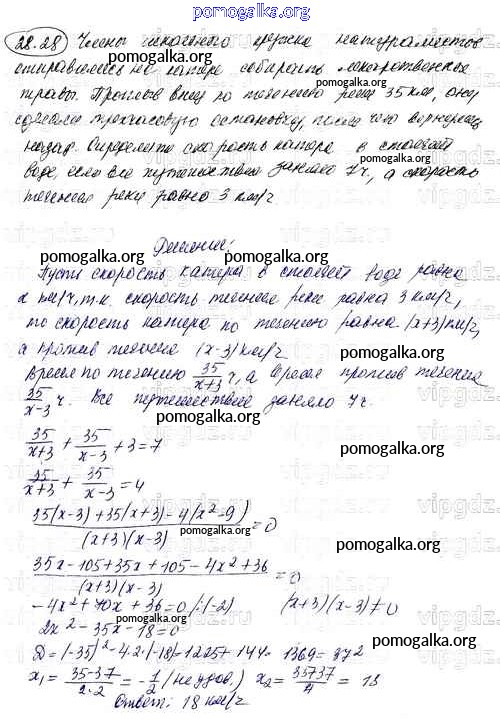 pomogalka.org
28.28 Члены школьного кружка натуралистов
отправились на катере собирать лекарственные
травы. Проплыв вниз по течению реки 35 км, они
сделали трехчасовую остановку, после чего вернулись
назад. Определите скорость катера в стоячей
воде, если все путешествие заняло 7 ч, а скорость
течения реки равна 3 км/ч
Решение:
Пусть скорость катера в стоячей воде равна
x км/ч, т.к. скорость течения реки равна 3 км/ч,
то скорость катера по течению равна (x+3) км/ч,
а против течения (x-3) км/ч
Время по течению 35/(x+3) ч, а время против течения
35/(x-3) ч. Все путешествие заняло 7 ч.
pomogalka.org
35/(x+3) + 35/(x-3) + 3 = 7
35/(x+3) + 35/(x-3) = 4
(35(x-3)+35(x+3)-4(x²-9))/((x+3)(x-3)) = 0
(35x-105+35x+105-4x²+36)/((x+3)(x-3)) = 0
-4x²+70x+36=0 /:(-2) (x+3)(x-3)≠0
2x²-35x-18=0
D=(-35)²-4·2·(-18)=1225+144=1369=37²
x₁ = (35-37)/(2·2) = -1/2 (не удов.) x₂ = (35+37)/4 = 18
Ответ: 18 км/ч
pomogalka.org